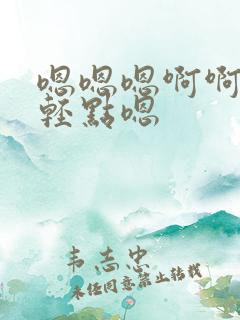 嗯嗯嗯啊啊
輕點嗯
韦志忠
未经同意禁止转载